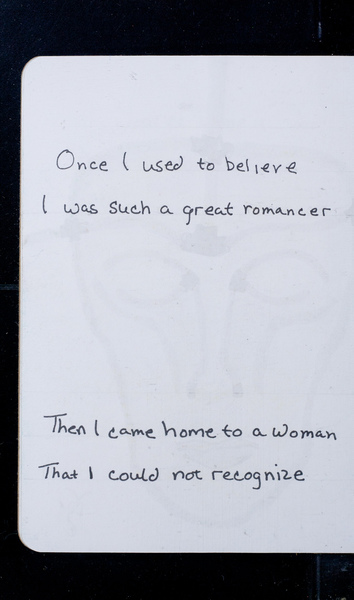 Once I used to believe
I was such a great romancer
Then I came home to a woman
That I could not recognize